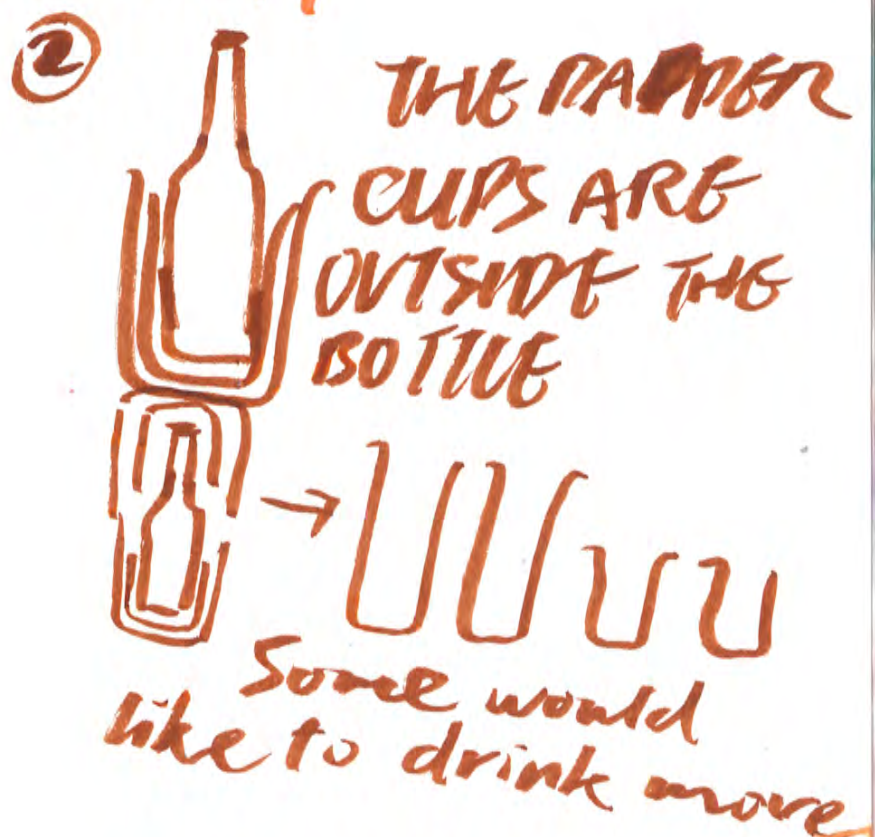 ②
THE PAPPER
CUPS ARE
OUTSIDE THE
BOTTLE
Some would
like to drink more